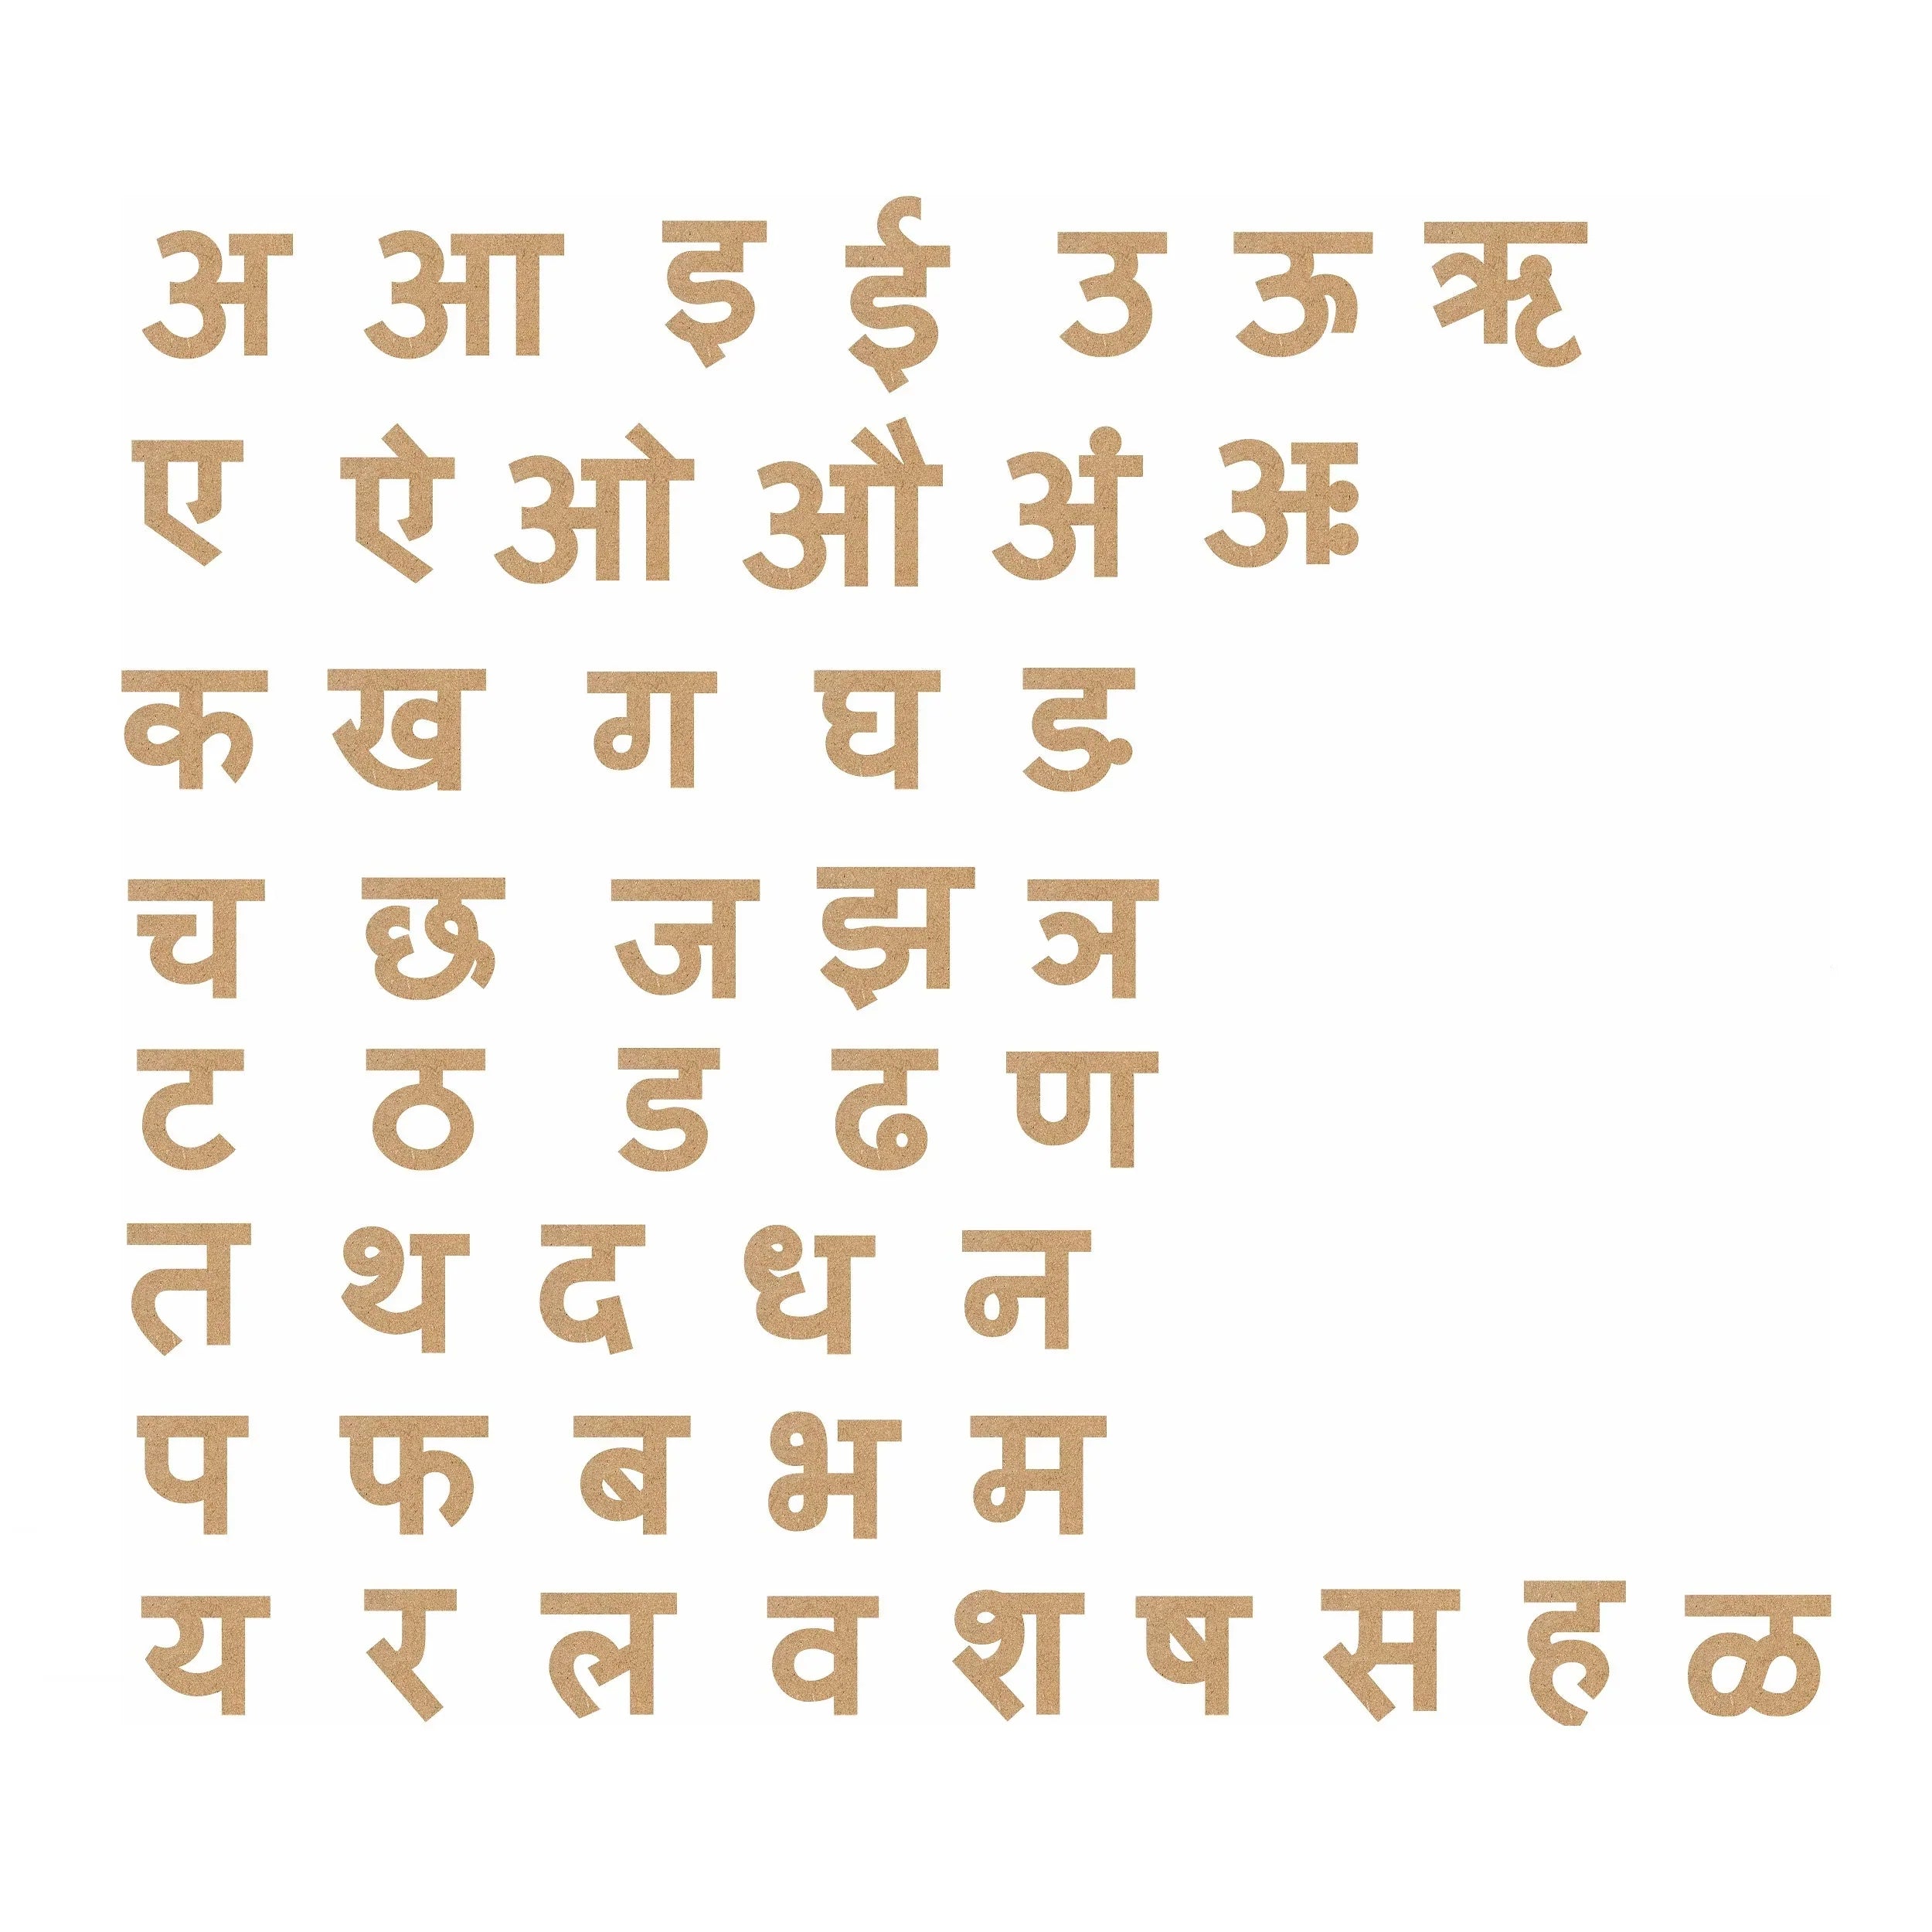 अ आ इ ई उ ऊ ऋ
ए ऐ ओ औ अं अः
क ख ग घ ङ
च छ ज झ ञ
ट ठ ड ढ ण
त थ द ध न
प फ ब भ म
य र ल व श ष स ह ळ